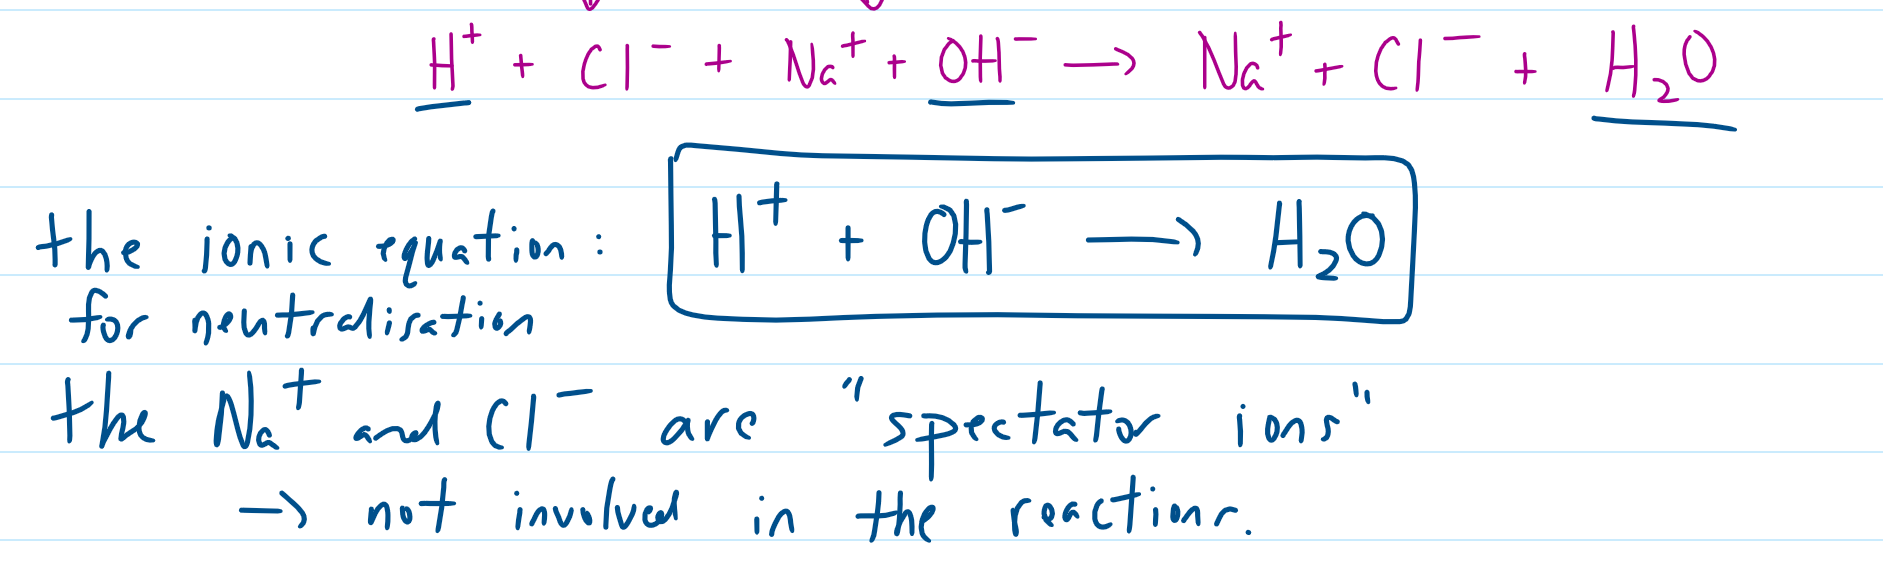 H⁺ + Cl⁻ + Na⁺ + OH⁻ → Na⁺ + Cl⁻ + H₂O
the ionic equation : H⁺ + OH⁻ → H₂O
for neutralisation
the Na⁺ and Cl⁻ are "spectator ions"
→ not involved in the reactions.